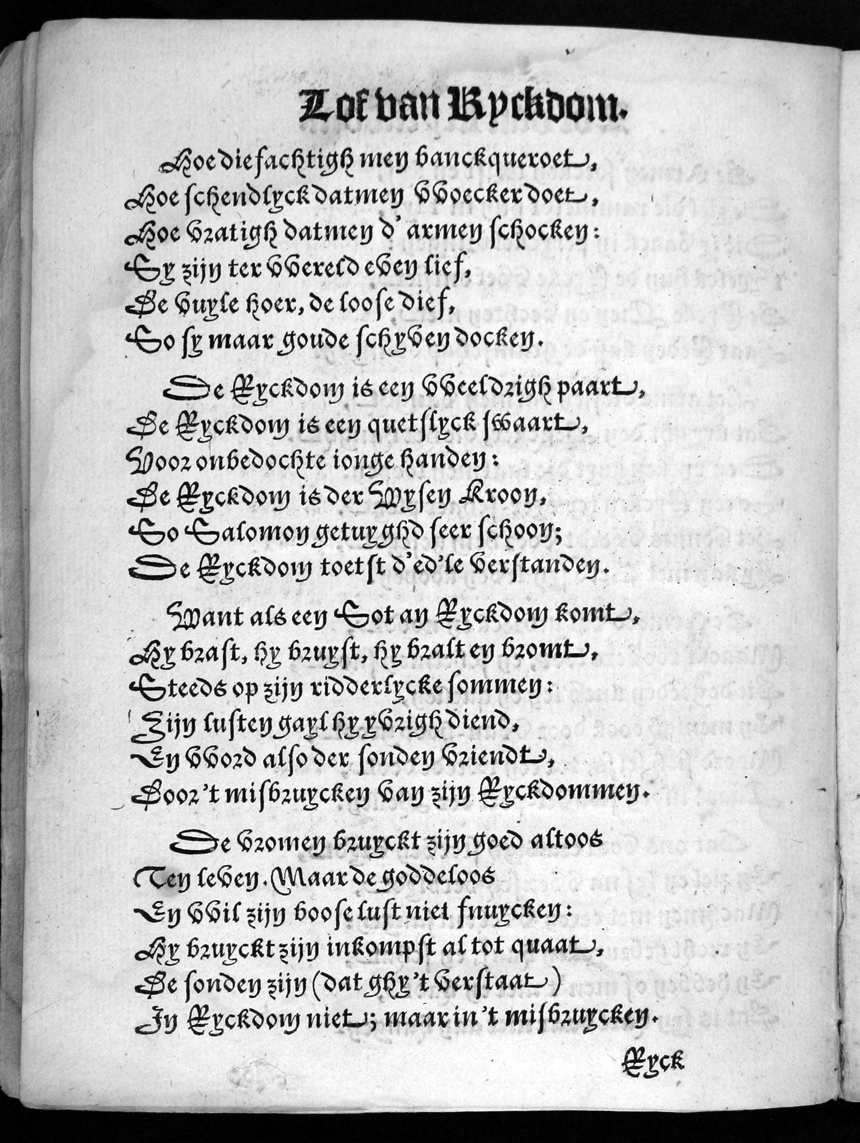 Lof van Ryckdom.
Hoe diefachtigh men banckqueroet,
Hoe schendlyck datmen vvoecker doet,
Hoe vratigh datmen d'armen schocken:
Sy zijn ter vvereld even lief,
De vuyle hoer, de loose dief,
So sy maar goude schyven docken.
De Ryckdom is een vveeldrigh paart,
De Ryckdom is een quetslyck swaart,
Voor onbedochte ionge handen:
De Ryckdom is der Wysen Kroon,
So Salomon getuyghd seer schoon;
De Ryckdom toetst d'ed'le verstanden.
Want als een Sot an Ryckdom komt,
Hy brast, hy bruyst, hy bralt en bromt,
Steeds op zijn ridderlycke sommen:
Zijn lusten gayl hy yvrigh diend,
En vvord also der sonden vriendt,
Door 't misbruycken van zijn Ryckdommen.
De vromen bruyckt zijn goed altoos
Ten leven. Maar de goddeloos
En vvil zijn boose lust niet snuycken:
Hy bruyckt zijn inkompst al tot quaat,
De sonden zijn (dat ghy 't verstaat)
In Ryckdom niet; maar in 't misbruycken.
Ryck